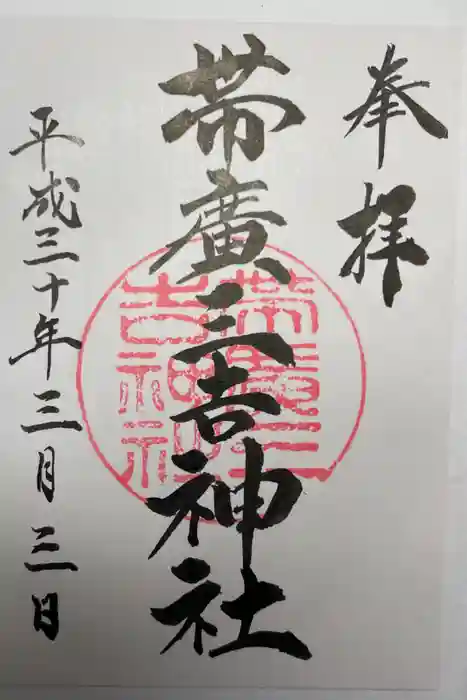 奉拝
帯廣三吉神社
帯廣三
吉神社
平成三十年三月三日